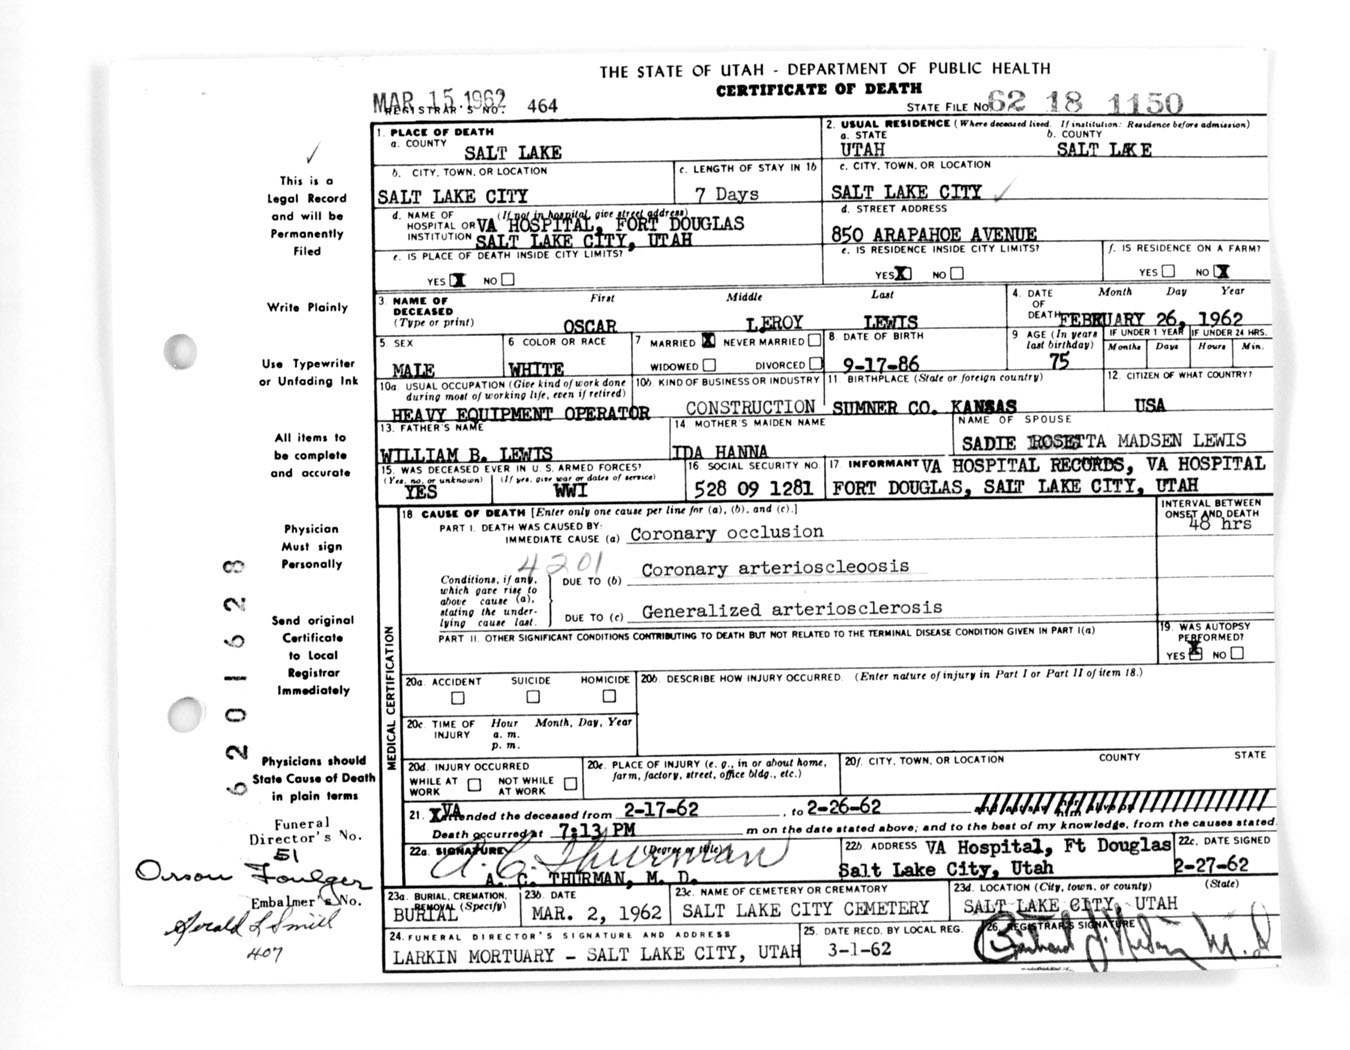 THE STATE OF UTAH - DEPARTMENT OF PUBLIC HEALTH
CERTIFICATE OF DEATH
MAR 15 1962
REGISTRAR'S NO. 464
STATE FILE NO. 62 18 1150
This is a
Legal Record
and will be
Permanently
Filed
Write Plainly
Use Typewriter
or Unfading Ink
All items to
be complete
and accurate
Physician
Must sign
Personally
Send original
Certificate
to Local
Registrar
Immediately
Physicians should
State Cause of Death
in plain terms
Funeral
Director's No.
51
Orson Foulger
Embalmer's No.
Gerald L Smill
407
6201628
1. PLACE OF DEATH
a. COUNTY
SALT LAKE
2. USUAL RESIDENCE (Where deceased lived. If institution: Residence before admission)
a. STATE
UTAH
b. COUNTY
SALT LAKE
b. CITY, TOWN, OR LOCATION
SALT LAKE CITY
c. LENGTH OF STAY IN 1b
7 Days
c. CITY, TOWN, OR LOCATION
SALT LAKE CITY
d. NAME OF HOSPITAL OR INSTITUTION (If not in hospital, give street address)
VA HOSPITAL, FORT DOUGLAS
SALT LAKE CITY, UTAH
d. STREET ADDRESS
850 ARAPAHOE AVENUE
e. IS PLACE OF DEATH INSIDE CITY LIMITS?
YES X NO
e. IS RESIDENCE INSIDE CITY LIMITS?
YES X NO
f. IS RESIDENCE ON A FARM?
YES NO X
3. NAME OF DECEASED (Type or print)
First Middle Last
OSCAR LEROY LEWIS
4. DATE OF DEATH
Month Day Year
FEBRUARY 26, 1962
5 SEX
MALE
6 COLOR OR RACE
WHITE
7 MARRIED X NEVER MARRIED
WIDOWED DIVORCED
8. DATE OF BIRTH
9-17-86
9 AGE (In years last birthday)
75
IF UNDER 1 YEAR
Months Days
IF UNDER 24 HRS.
Hours Min.
10a. USUAL OCCUPATION (Give kind of work done during most of working life, even if retired)
HEAVY EQUIPMENT OPERATOR
10b. KIND OF BUSINESS OR INDUSTRY
CONSTRUCTION
11 BIRTHPLACE (State or foreign country)
SUMNER CO. KANSAS
12 CITIZEN OF WHAT COUNTRY?
USA
13. FATHER'S NAME
WILLIAM B. LEWIS
14 MOTHER'S MAIDEN NAME
IDA HANNA
NAME OF SPOUSE
SADIE ROSETTA MADSEN LEWIS
15. WAS DECEASED EVER IN U. S. ARMED FORCES?
(Yes, no, or unknown) (If yes, give war or dates of service)
YES WWI
16 SOCIAL SECURITY NO.
528 09 1281
17 INFORMANT VA HOSPITAL RECORDS, VA HOSPITAL
FORT DOUGLAS, SALT LAKE CITY, UTAH
MEDICAL CERTIFICATION
18 CAUSE OF DEATH [Enter only one cause per line for (a), (b), and (c).]
INTERVAL BETWEEN
ONSET AND DEATH
48 hrs
PART I. DEATH WAS CAUSED BY:
IMMEDIATE CAUSE (a) Coronary occlusion
4201
Conditions, if any,
which gave rise to
above cause (a),
stating the under-
lying cause last.
DUE TO (b) Coronary arterioscleoosis
DUE TO (c) Generalized arteriosclerosis
PART II. OTHER SIGNIFICANT CONDITIONS CONTRIBUTING TO DEATH BUT NOT RELATED TO THE TERMINAL DISEASE CONDITION GIVEN IN PART I(a)
19. WAS AUTOPSY
PERFORMED?
YES X NO
20a. ACCIDENT SUICIDE HOMICIDE
20b. DESCRIBE HOW INJURY OCCURRED. (Enter nature of injury in Part I or Part II of item 18.)
20c. TIME OF INJURY
Hour Month, Day, Year
a. m.
p. m.
20d. INJURY OCCURRED
WHILE AT WORK NOT WHILE AT WORK
20e. PLACE OF INJURY (e. g., in or about home,
farm, factory, street, office bldg., etc.)
20f. CITY, TOWN, OR LOCATION COUNTY STATE
21. VA attended the deceased from 2-17-62, to 2-26-62
Death occurred at 7:13 PM m on the date stated above; and to the best of my knowledge, from the causes stated.
22a. SIGNATURE (Degree or title)
A. C. Thurman
A. C. THURMAN, M. D.
22b. ADDRESS VA Hospital, Ft Douglas
Salt Lake City, Utah
22c. DATE SIGNED
2-27-62
23a. BURIAL, CREMATION, REMOVAL (Specify)
BURIAL
23b. DATE
MAR. 2, 1962
23c. NAME OF CEMETERY OR CREMATORY
SALT LAKE CITY CEMETERY
23d. LOCATION (City, town, or county) (State)
SALT LAKE CITY, UTAH
24. FUNERAL DIRECTOR'S SIGNATURE AND ADDRESS
LARKIN MORTUARY - SALT LAKE CITY, UTAH
25. DATE RECD. BY LOCAL REG.
3-1-62
26. REGISTRAR'S SIGNATURE